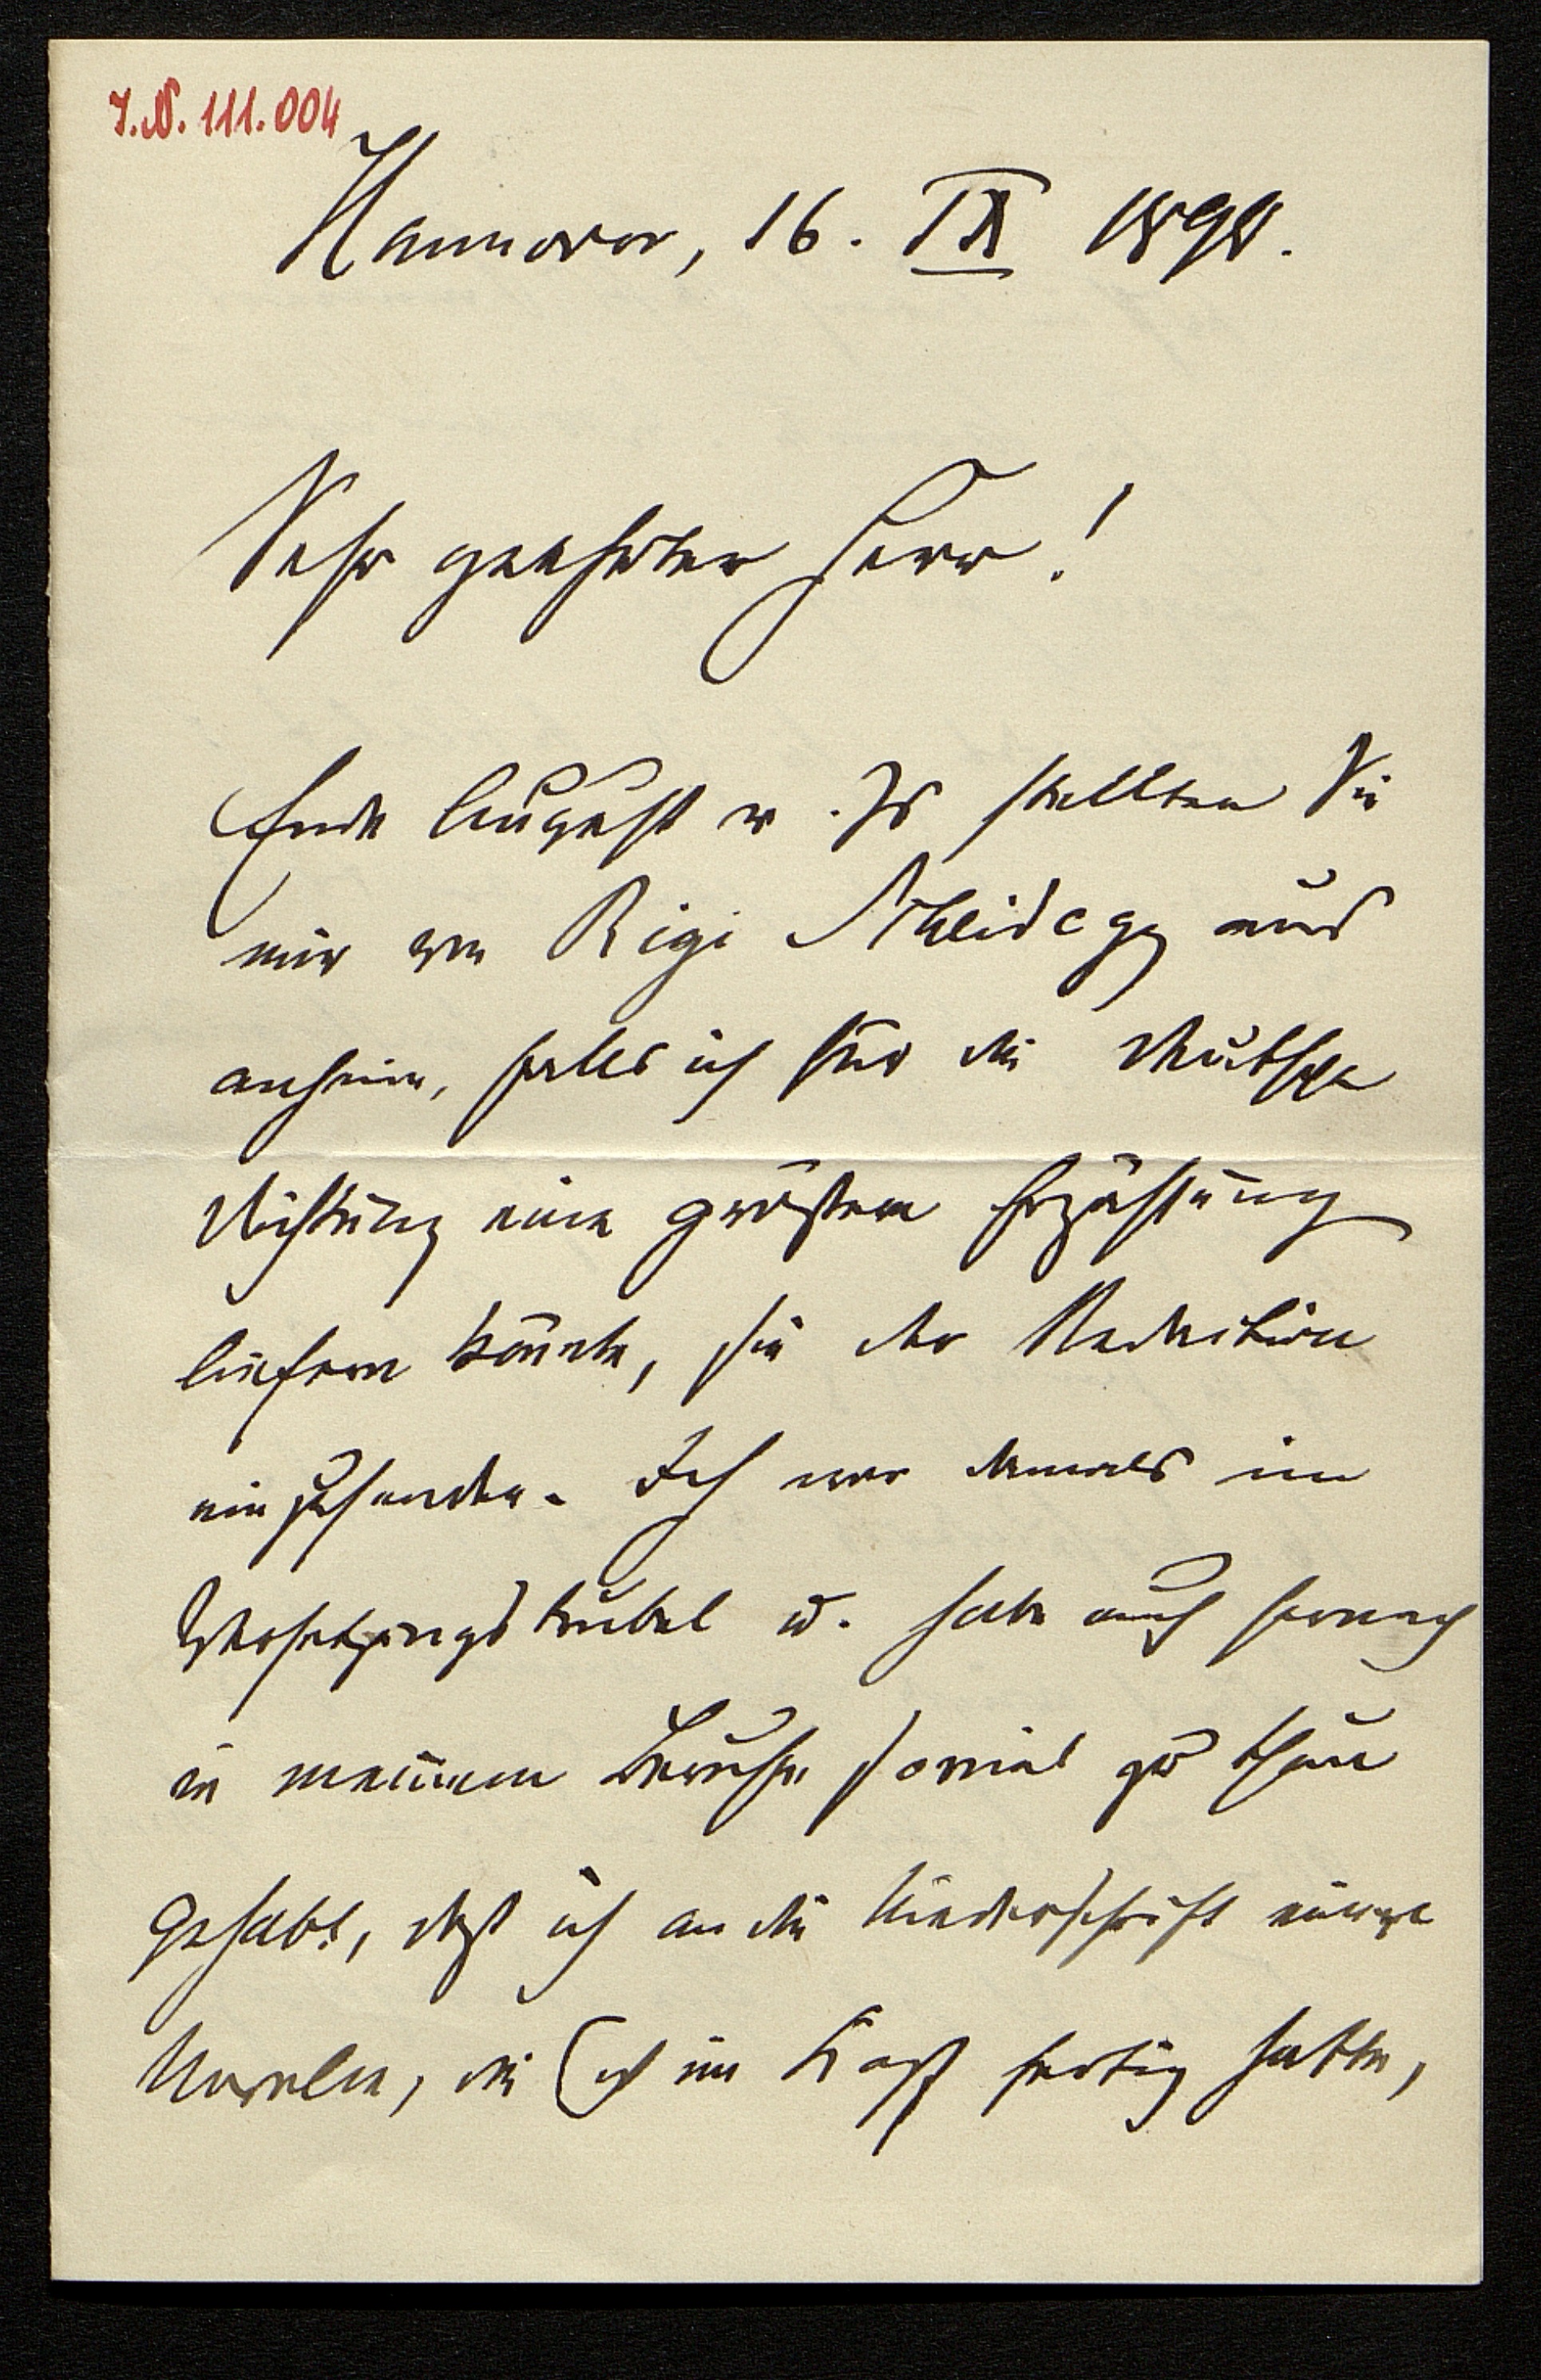 I.N. 111.004
Hannover, 16. IX 1898.
Sehr geehrter Herr!
Ende August v. Js stellten Sie
mir von Rigi Scheidegg aus
anheim, falls ich für die Deutsche
Dichtung eine größere Erzählung
liefern könnte, sie der Redaktion
einzusenden. Ich war damals im
trubel u. habe auch hernach
in meinem Berufe soviel zu thun
gehabt, daß ich an die Niederschrift einer
Novelle, die ich im Kopf fertig hatte,